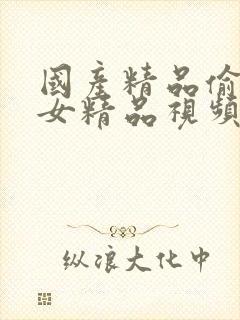 國産精品偷
女精品視頻
纵浪大化中